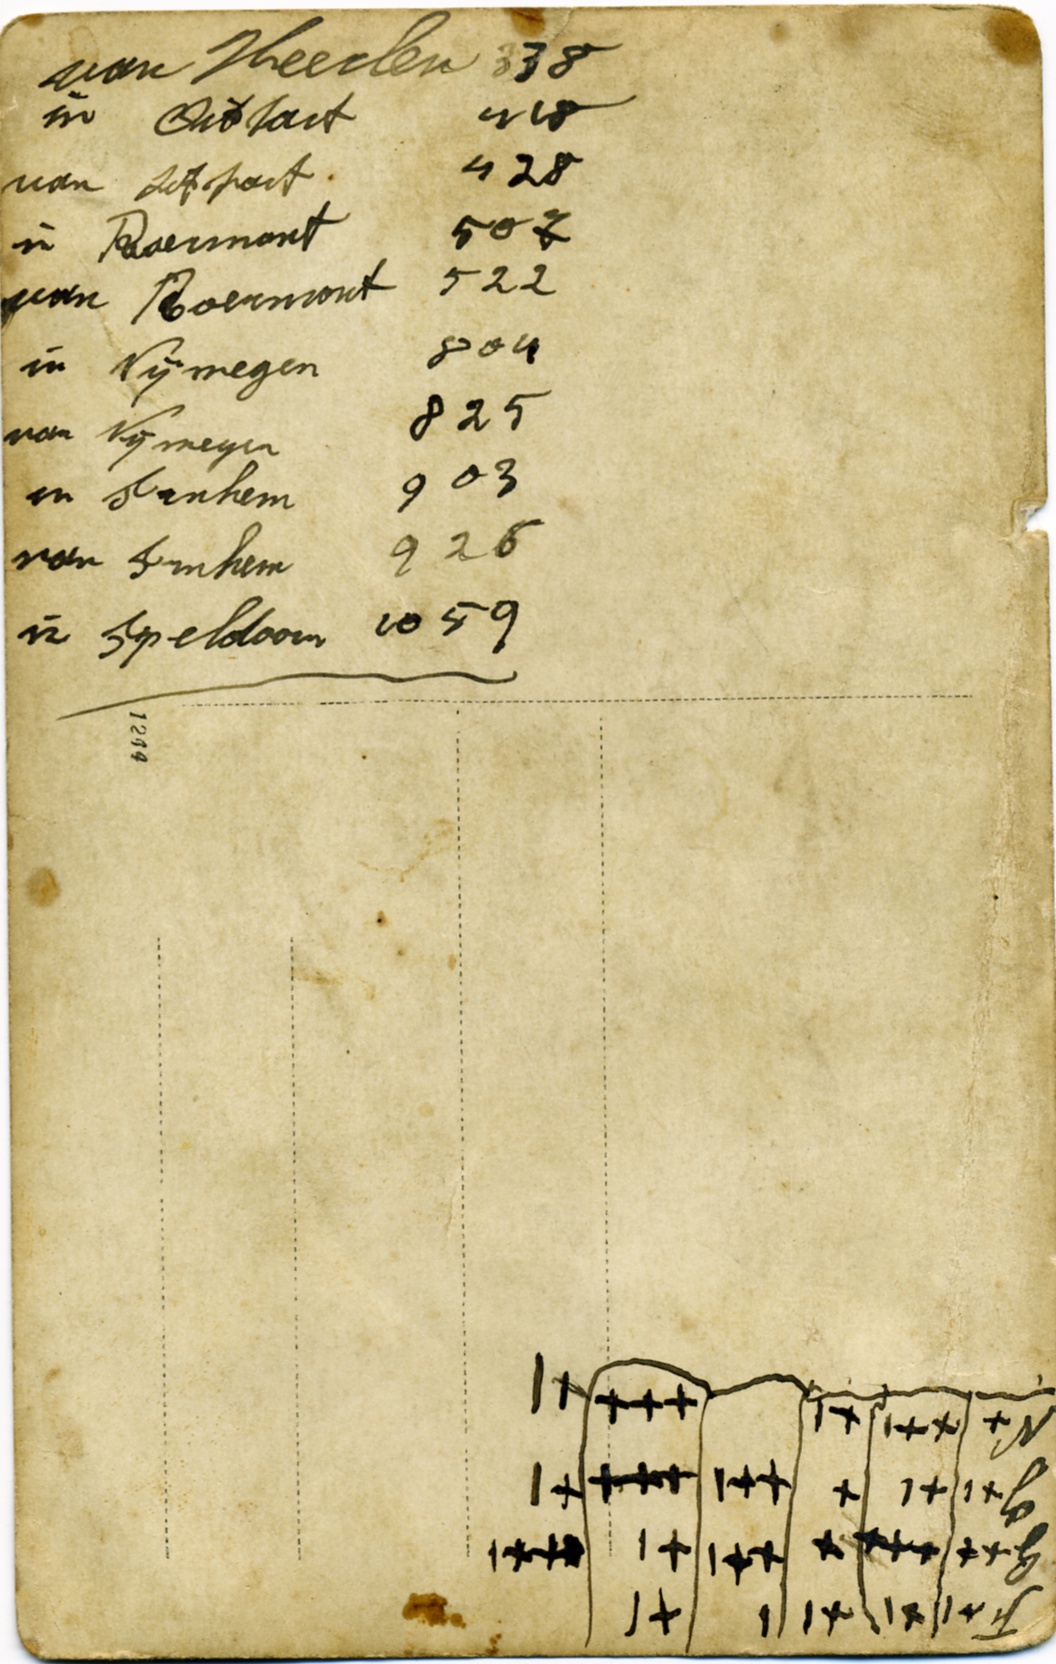 van Heerlen 338
in Sittart 418
van Sittart 428
in Roermont 507
van Roermont 522
in Nijmegen 804
van Nijmegen 825
in Arnhem 903
van Arnhem 926
in Apeldoorn 1059
1244